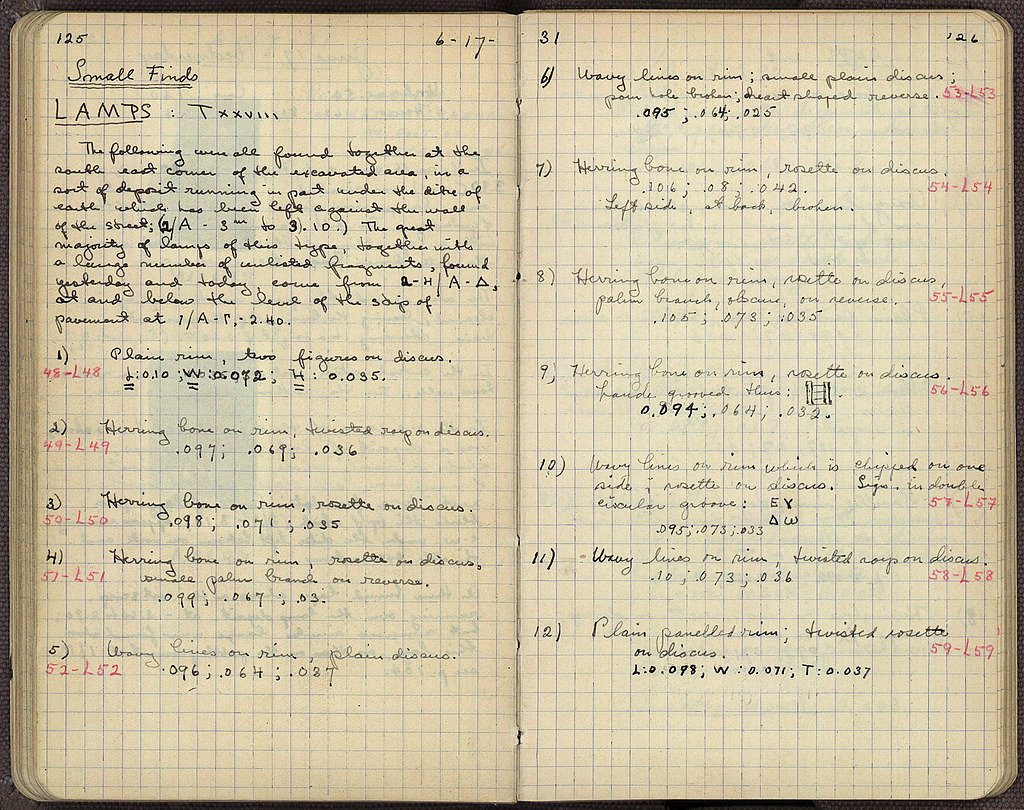 125
6-17-
Small Finds
LAMPS : T XXVIII
The following were all found together at the
south east corner of the excavated area, in a
sort of deposit running in part under the dike of
earth which has been left against the wall
of the street; (2/A - 3m to 3).10.) The great
majority of lamps of this type, together with
a large number of unlisted fragments, found
yesterday and today, come from 2-H/A-Δ,
at and below the level of the strip of
pavement at 1/A-Γ,-2.40.
1) Plain rim, two figures on discus.
48-L48 L:0.10; W:0.072; H: 0.035.
2) Herring bone on rim, twisted rays on discus.
49-L49 .097; .069; .036
3) Herring bone on rim, rosette on discus.
50-L50 .098; .071; .035
4) Herring bone on rim, rosette on discus,
51-L51 small palm branch on reverse.
.099; .067; .03.
5) Wavy lines on rim, plain discus.
52-L52 .096; .064; .037
31
126
6) Wavy lines on rim; small plain discus;
pour hole broken; heart shaped reverse. 53-L53
.095; .064; .025
7) Herring bone on rim, rosette on discus.
.106; .08; .042. 54-L54
Left side, at back, broken.
8) Herring bone on rim, rosette on discus,
palm branch, obscure, on reverse. 55-L55
.105; .073; .035
9) Herring bone on rim, rosette on discus.
handle grooved thus: 56-L56
0.094; .064; .032.
10) Wavy lines on rim which is chipped on one
side; rosette on discus. Sign. in double
circular groove: ΕΥ 57-L57
Δω
.095; .073; .033
11) Wavy lines on rim, twisted rays on discus.
.10; .073; .036 58-L58
12) Plain panelled rim; twisted rosette
on discus. 59-L59
L:0.098; W:0.071; T:0.037